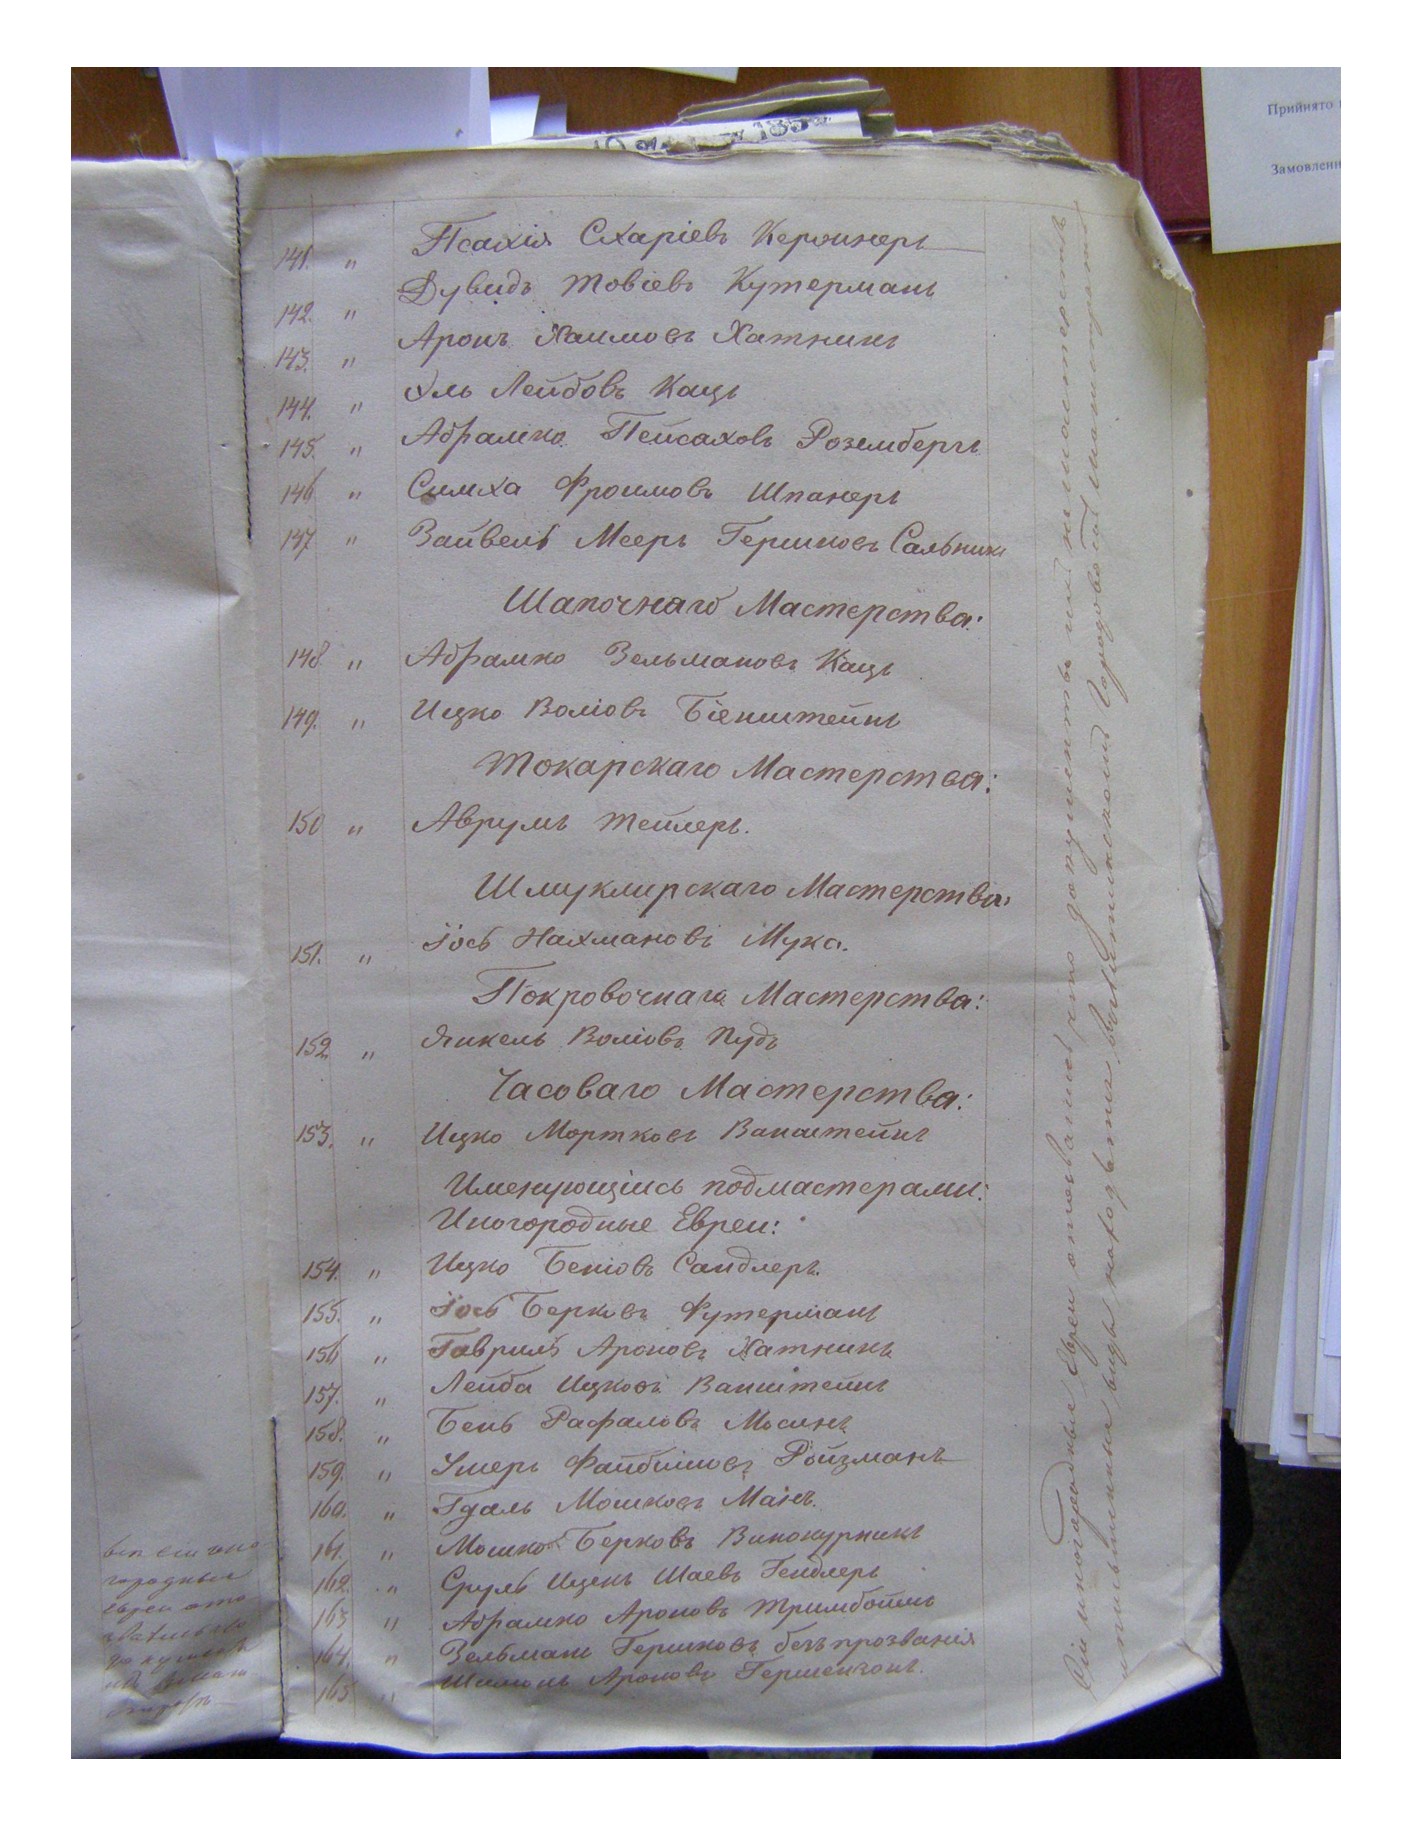 Прийнято
Замовленн
141. " Псахія Схаріевъ Кершнеръ
142. " Дувидъ Товіевъ Кутерманъ
143. " Аронъ Хаимовъ Хатникъ
144. " Эль Лейбовъ Кацъ
145. " Абрамко Пейсаховъ Роземберъ
146 " Симха Фроимовъ Шпанеръ
147 " Зайвель Мееръ Гершковъ Сальникъ
Шапочнаго Мастерства:
148 " Абрамко Зельмановъ Кацъ
149. " Ицко Воліовъ Біенштейнъ
Токарскаго Мастерства:
150 " Аврумъ Тейлеръ.
Шмуклирскаго Мастерства:
151. " Іось Нахмановъ Мука.
Покровочнаго Мастерства:
152 " Янкель Воліовъ Пудъ
Часоваго Мастерства:
153. " Ицко Мортковъ Ванштейнъ
Именующіись подмастерами:
Иногородные Евреи:
154. " Ицко Беніовъ Сандлеръ.
155. " Іось Берковъ Футерманъ
156 " Гавриль Ароновъ Хатникъ
157. " Лейба Ицковъ Ванштейнъ
158. " Бень Рафаловъ Мосинъ
159. " Умеръ Файбишовъ Ройзманъ
160. " Гдаль Мошковъ Манъ.
161. " Мошко Берковъ Винокурникъ
162. " Сруль Ицекъ Шаевъ Гендлеръ
163 " Абрамко Ароновъ Тримбойтъ
164. " Зельманъ Гершковъ безъ прозванія
165 " Шимонъ Ароновъ Гершензонъ.
Сіи иногородные Евреи отозвались что документы ихъ
письменные виды находятся въ Городовомъ Магистратѣ
всѣ сіи ино-
городные
Евреи ото-
звались что